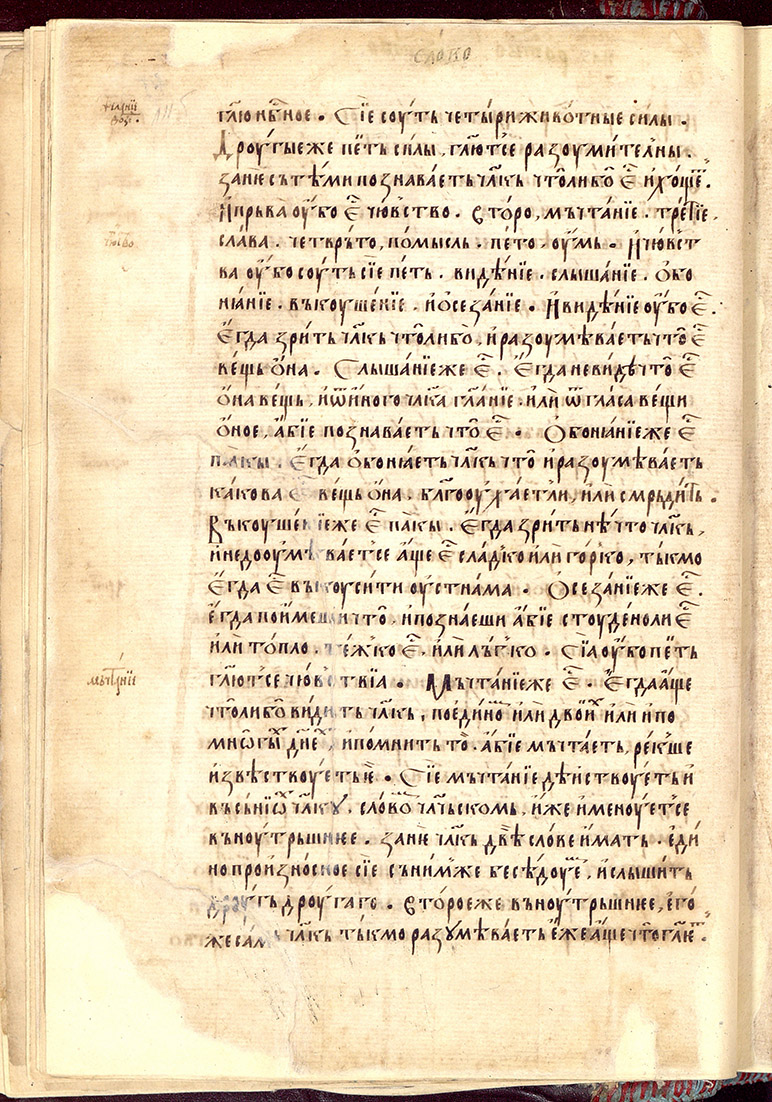 слово
гл҃ю нб҃ное · Сїе соуть четыри живѡтные силы ·
Дроугые же петь силы, гл҃ютсе разоумителны ·
зан̾ıе съ тѣми познаваеть чл҃кь что либо Є҆͒ и хощеⷮ ·
И прьва оубо Є҆͒ чювьство · второ, мьчтанїе · третїе,
слава · четврьто, помысль · пето, оумь · И чювⷭт
ва оубо соуть сїе петь · видѣнїе · слышанїе · обо
нıанїе · вькоушенїе · и осезанїе · И видѣнїе оубо Є҆͒ ·
Егда зрить чл҃кь что либо, и разоумѣваеть что Є҆͒
вещь она · Слышанїе же Є҆͒ · Егда не видѣ что Є҆͒
она вещь, и ѿ иного чл҃ка гл҃анїе · или ѿ гласа вещи
оное, абїе познаваеть что Є҆͒ · Обонıанїе же Є҆͒
пакы · Егда обонıаеть чл҃кь что и разоумѣваеть
какова Є҆͒ вещь она · бл҃гооухаеть ли, или смрьдить ·
Вькоушенїе же Є҆͒ пакы · Егда зрить нѣчто чл҃кь,
и недооумѣваетсе аще Є҆͒ сладко или горко, тькмо
егда Є҆͒ вькоусити оустнама · Осезанїе же Є҆͒ ·
егда поимеши что, и познаеши абїе стоудено ли Є҆͒
или топло · тежко Є҆͒ · или льгко · Сїа оубо петь
гл҃ютсе чювьствїа · Мьчтанїе же Є҆͒ · Егда аще
что либо видить чл҃кь, по единоⷨ или двоиⷯ или и по
мнѡгыⷯ дн҃еⷯ, и помнить то · абїе мьчтаеть, рекше
извѣствоуеть е · Сїе мьчтанїе дѣиствоуеть и
вь сьнїиⷯ чл҃коу · словоⷨ чл҃чьскомь, иже именоуетсе
вьноутрьшнıее · зан̾ıе чл҃кь двѣ слове имать · еди
но произносное сїе сь нимже бесѣдоуеⷮ, и слышить
дроугь дроугаго · второе же вьноутрьшнıее, его
же самь чл҃кь тькмо разоумѣваеть еже аще что гл҃еⷮ ·
мьчтанїе